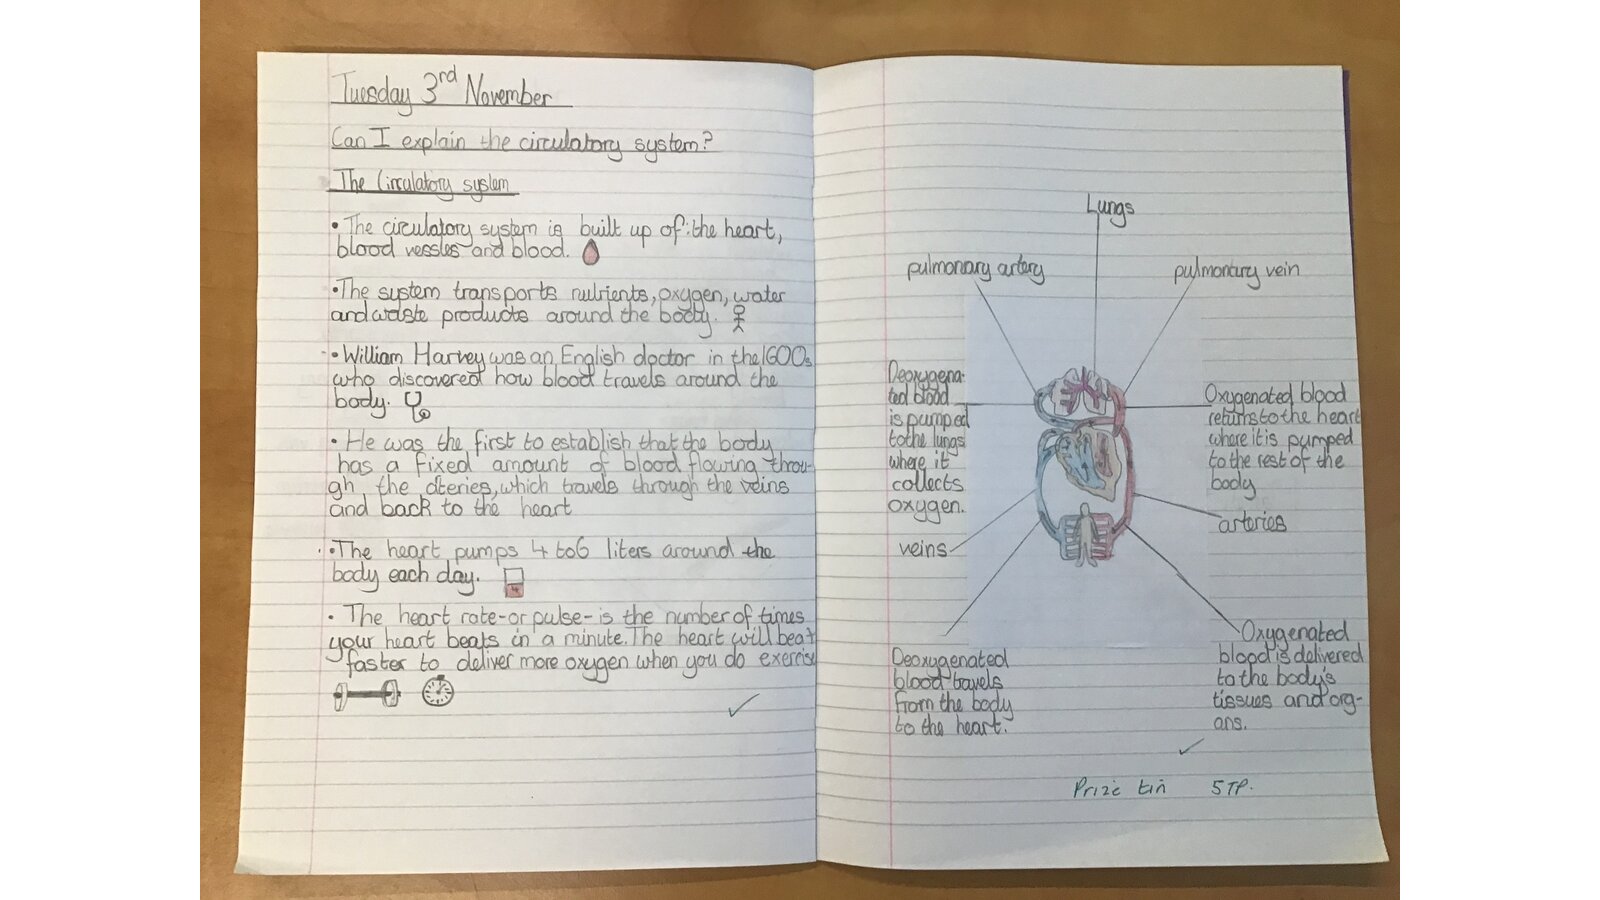 Tuesday 3rd November
Can I explain the circulatory system?
The Circulatory system
• The circulatory system is built up of: the heart,
blood vessles and blood.
• The system transports nutrients, oxygen, water
and waste products around the body.
• William Harvey was an English doctor in the 1600s
who discovered how blood travels around the
body.
• He was the first to establish that the body
has a fixed amount of blood flowing throu-
gh the ateries, which travels through the veins
and back to the heart
• The heart pumps 4 to 6 liters around the
body each day.
4
• The heart rate-or pulse-is the number of times
your heart beats in a minute. The heart will beat
faster to deliver more oxygen when you do exercise
Lungs
pulmonary artery
pulmonary vein
Deoxygena-
ted blood
is pumped
to the lungs
where it
collects
oxygen.
Oxygenated blood
returns to the heart
where it is pumped
to the rest of the
body
veins
arteries
Deoxygenated
blood travels
from the body
to the heart.
Oxygenated
blood is delivered
to the body's
tissues and org-
ans.
Prize tin 5TP.